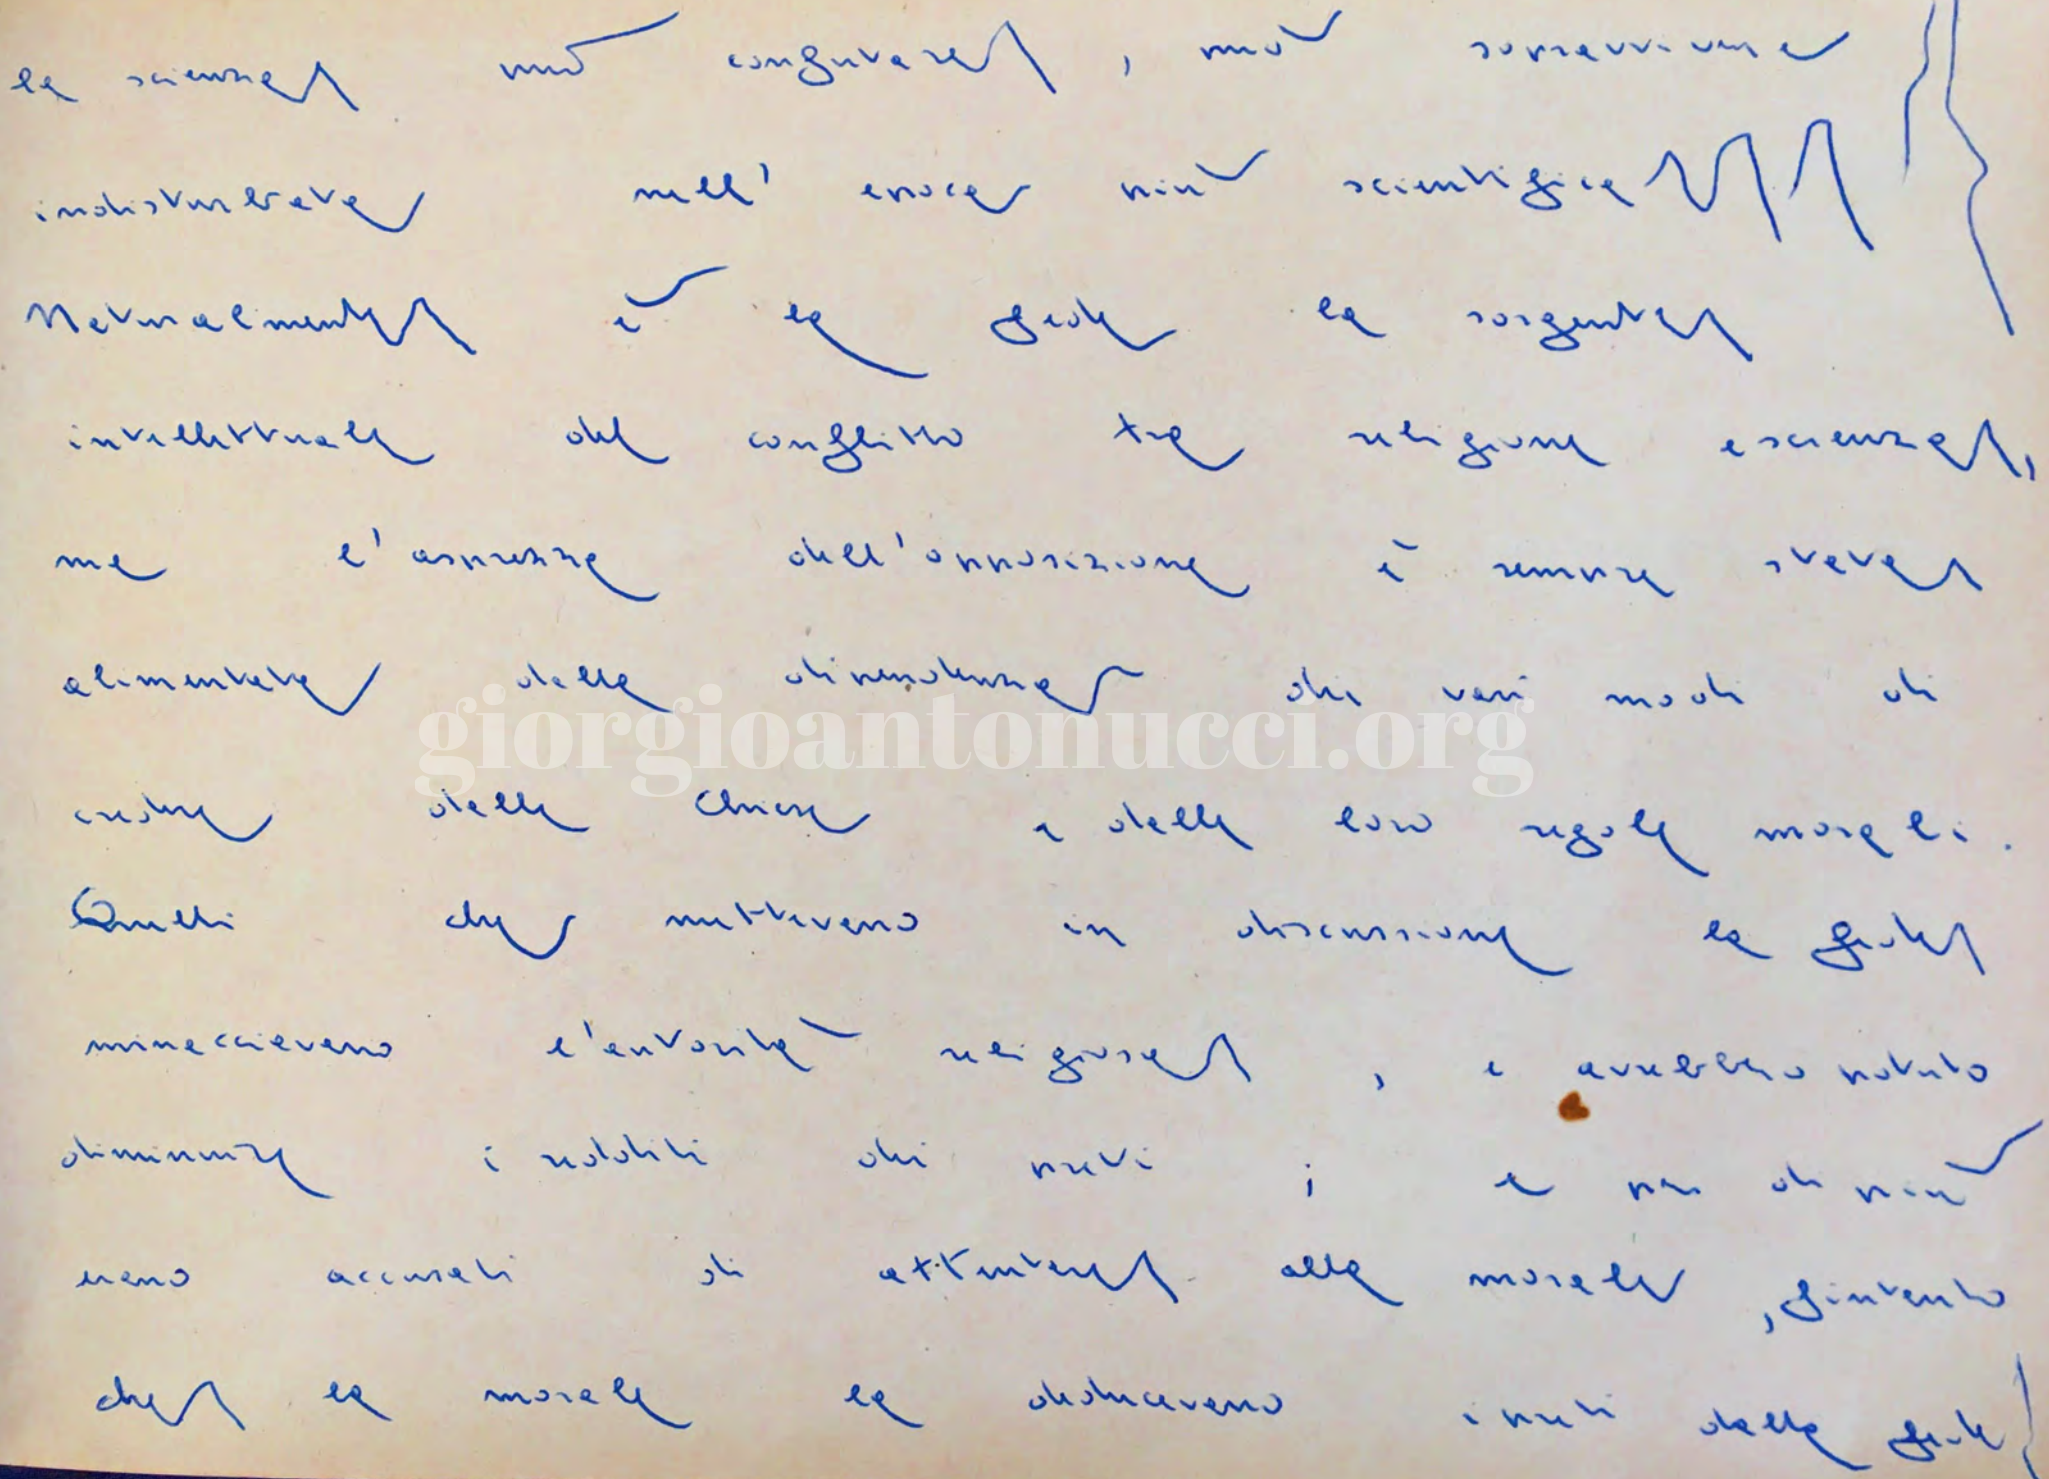 la scienza può confutare, può sopravvivere
indisturbata nell' epoca più scientifica
Naturalmente è la fede la sorgente
intellettuale del conflitto tra religione e scienza,
ma l'asprezza dell'opposizione è sempre stata
alimentata dalla dipendenza dei vari modi di
credere dalle Chiese e dalle loro regole morali.
Quelli che mettevano in discussione la fede
minacciavano l'autorità religiosa, e avrebbero potuto
diminuire i redditi dei preti; e per di più
giorgioantonucci.org
erano accusati di attentare alla morale, fintanto
che la morale la deducevano i preti dalla fede